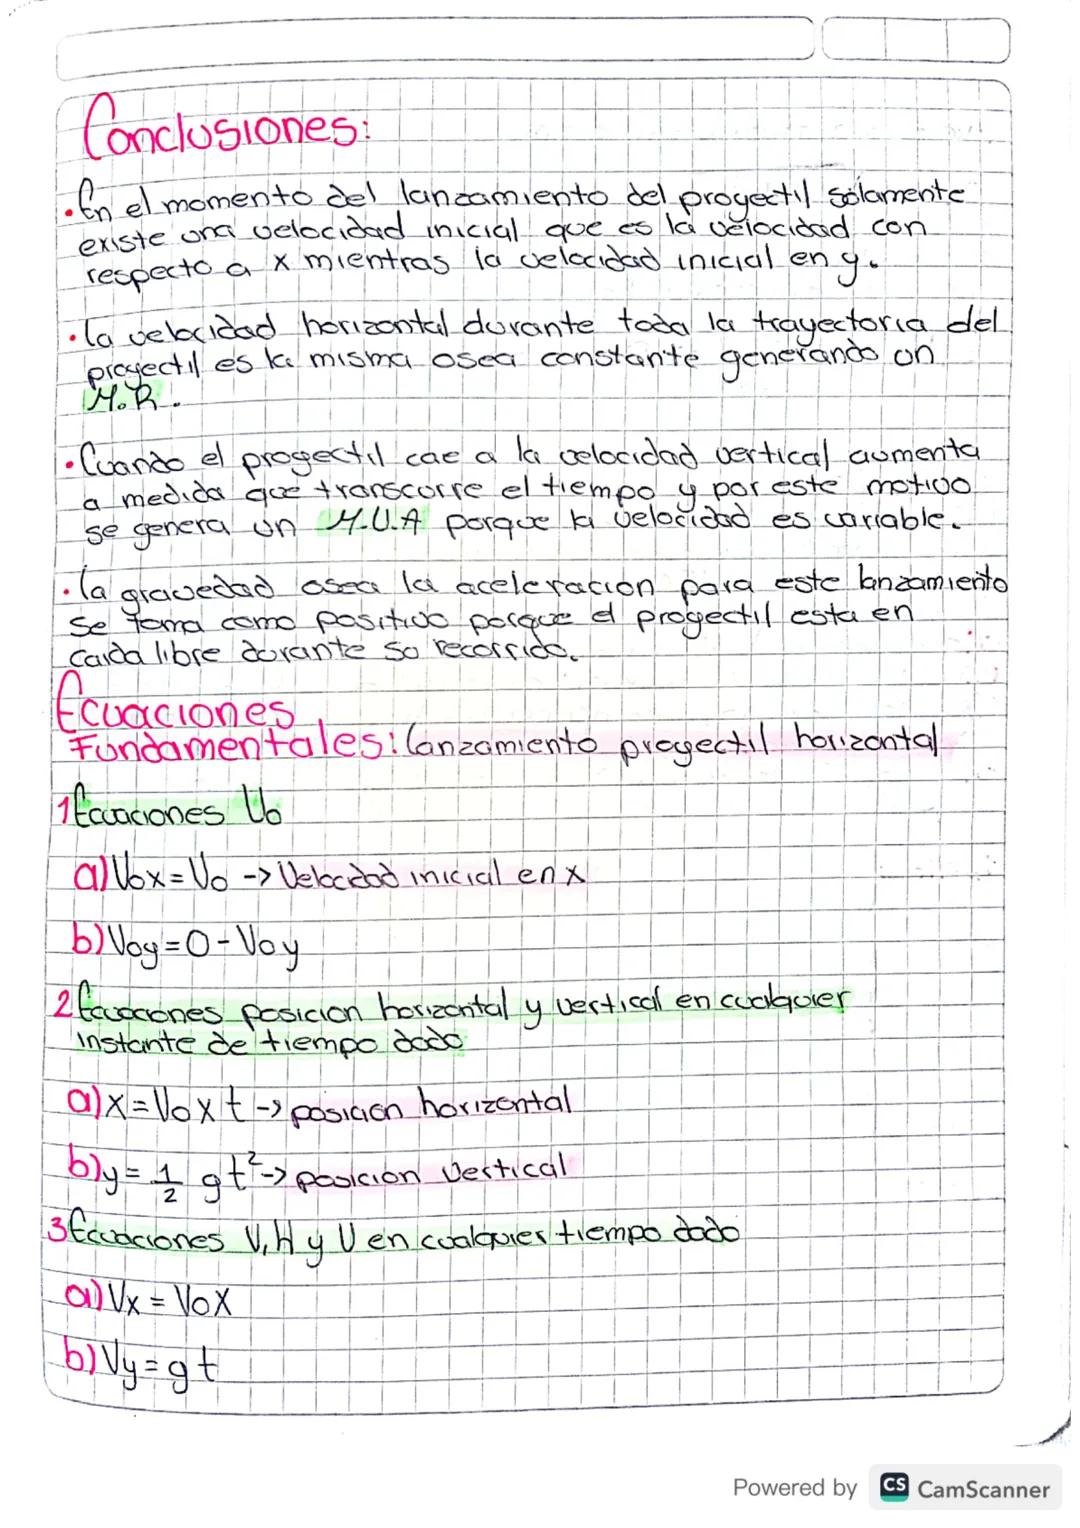 Conclusiones:
• En el momento del lanzamiento del proyectil solamente
existe una velocidad inicial que es la velocidad con
respecto a x mientras la velocidad inicial en y.
• la velocidad horizontal durante toda la trayectoria del
proyectil es la misma osea constante generando un
M.R.
• Cuando el proyectil cae a la velocidad vertical aumenta
a medida que transcorre el tiempo y por este motivo
se genera un M.U.A porque la velocidad es variable.
• la gravedad osea la aceleracion para este lanzamiento
se toma como positivo porque el proyectil esta en
caida libre durante so recorrido.
Ecuaciones
Fundamentales: lanzamiento proyectil horizontal
1 Ecuaciones Vo
a) Vox = Vo -> Velocidad inicial en x
b) Voy = 0 - Voy
2 Ecuaciones posicion horizontal y vertical en cualquier
instante de tiempo dado
a) x = Vox t -> posicion horizontal
b) y = 1/2 gt² -> posicion vertical
3 Ecuaciones V, H y V en cualquier tiempo dado
a) Vx = Vox
b) Vy = gt
Powered by CS CamScanner